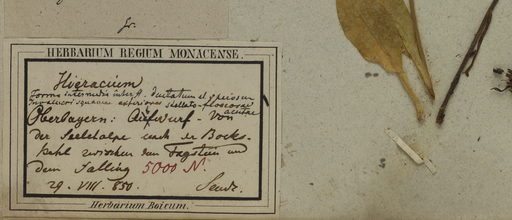 HERBARIUM REGIUM MONACENSE.
Hieracium
Forma intermedia inter H. dentatum et
Involucri squamae exteriores stellato-floccosae
acutae
Oberbayern: Aufwurf - Von
der Seelehalpe nach der Bocks-
stehl zwischen dem und
dem Falling 5000 N.
29. VIII. 850. Sendt.
Herbarium Boicum.